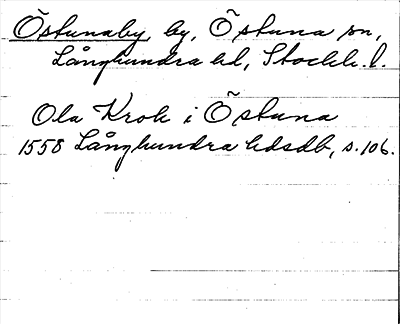 Östunaby, by, Östuna sn,
Långhundra hd, Stockh. l.
Ola Krok i Östuna
1558 Långhundra hdsdb, s. 106.